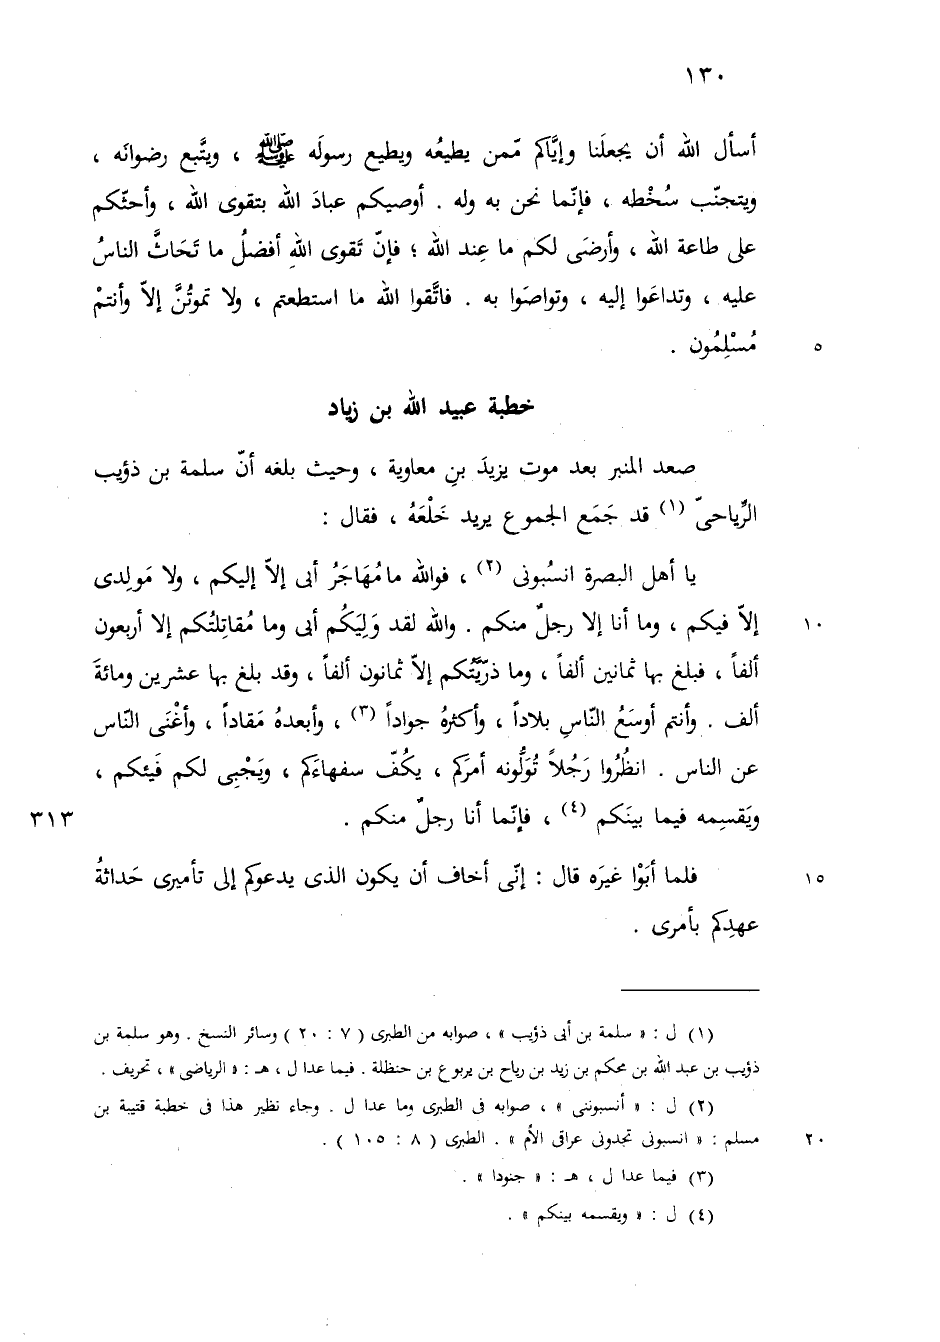 ١٣٠
أسأل الله أن يجعلَنا وإيَّاكم مّمن يطيعُه ويطيع رسولَه ﷺ ، ويتَّبع رضوانَه ،
ويتجنّب سُخْطه ، فإنّما نحن به وله . أوصيكم عبادَ الله بتقوى الله ، وأحثّكم
على طاعة الله ، وأرضَى لكم ما عِند الله ؛ فإنّ تَقوى اللهِ أفضلُ ما تَحَاثَّ الناسُ
عليه ، وتداعَوا إليه ، وتواصَوا به . فاتَّقوا الله ما استطعتم ، ولا تموتُنَّ إلاّ وأنتمْ
مُسْلِمُون . ٥
خطبة عبيد الله بن زياد
صعد المنبر بعد موت يزيدَ بنِ معاوية ، وحيث بلغه أنّ سلمة بن ذؤيب
الرِّياحىّ (١) قد جَمَع الجموع يريد خَلْعَهُ ، فقال :
يا أهل البصرة انسُبونى (٢) ، فوالله ما مُهَاجَرُ أبى إلاّ إليكم ، ولا مَولِدى
إلاّ فيكم ، وما أنا إلا رجلٌ منكم . والله لقد وَلِيَكُم أبى وما مُقاتِلتُكم إلا أربعون ١٠
ألفاً ، فبلغ بها ثمانين ألفاً ، وما ذرّيَّتُكم إلاّ ثمانون ألفاً ، وقد بلغ بها عشرين ومائةَ
ألف . وأنتم أوسَعُ النّاسِ بلاداً ، وأكثرهُ جواداً (٣) ، وأبعدهُ مَقاداً ، وأغْنَى النّاس
عن الناس . انظُرُوا رَجُلاً تُوَلُّونه أمرَكم ، يكُفّ سفهاءَكم ، ويَجْبِى لكم فَيئكم ،
ويَقسِمه فيما بينَكم (٤) ، فإنّما أنا رجلٌ منكم . ٣١٣
فلما أبَوْا غيرَه قال : إنّى أخاف أن يكون الذى يدعوكم إلى تأميرى حَداثةُ ١٥
عهدِكم بأمرى .
(١) ل : « سلمة بن أبى ذؤيب » ، صوابه من الطبرى ( ٧ : ٢٠ ) وسائر النسخ . وهو سلمة بن
ذؤيب بن عبد الله بن محكم بن زيد بن رياح بن يربوع بن حنظلة . فيما عدا ل ، هـ : « الرياضى » ، تحريف .
(٢) ل : « أنسبوننى » ، صوابه فى الطبرى وما عدا ل . وجاء نظير هذا فى خطبة قتيبة بن
مسلم : « انسبونى تجدونى عراقى الأم » . الطبرى ( ٨ : ١٠٥ ) . ٢٠
(٣) فيما عدا ل ، هـ : « جنودا » .
(٤) ل : « ويقسمه بينكم » .